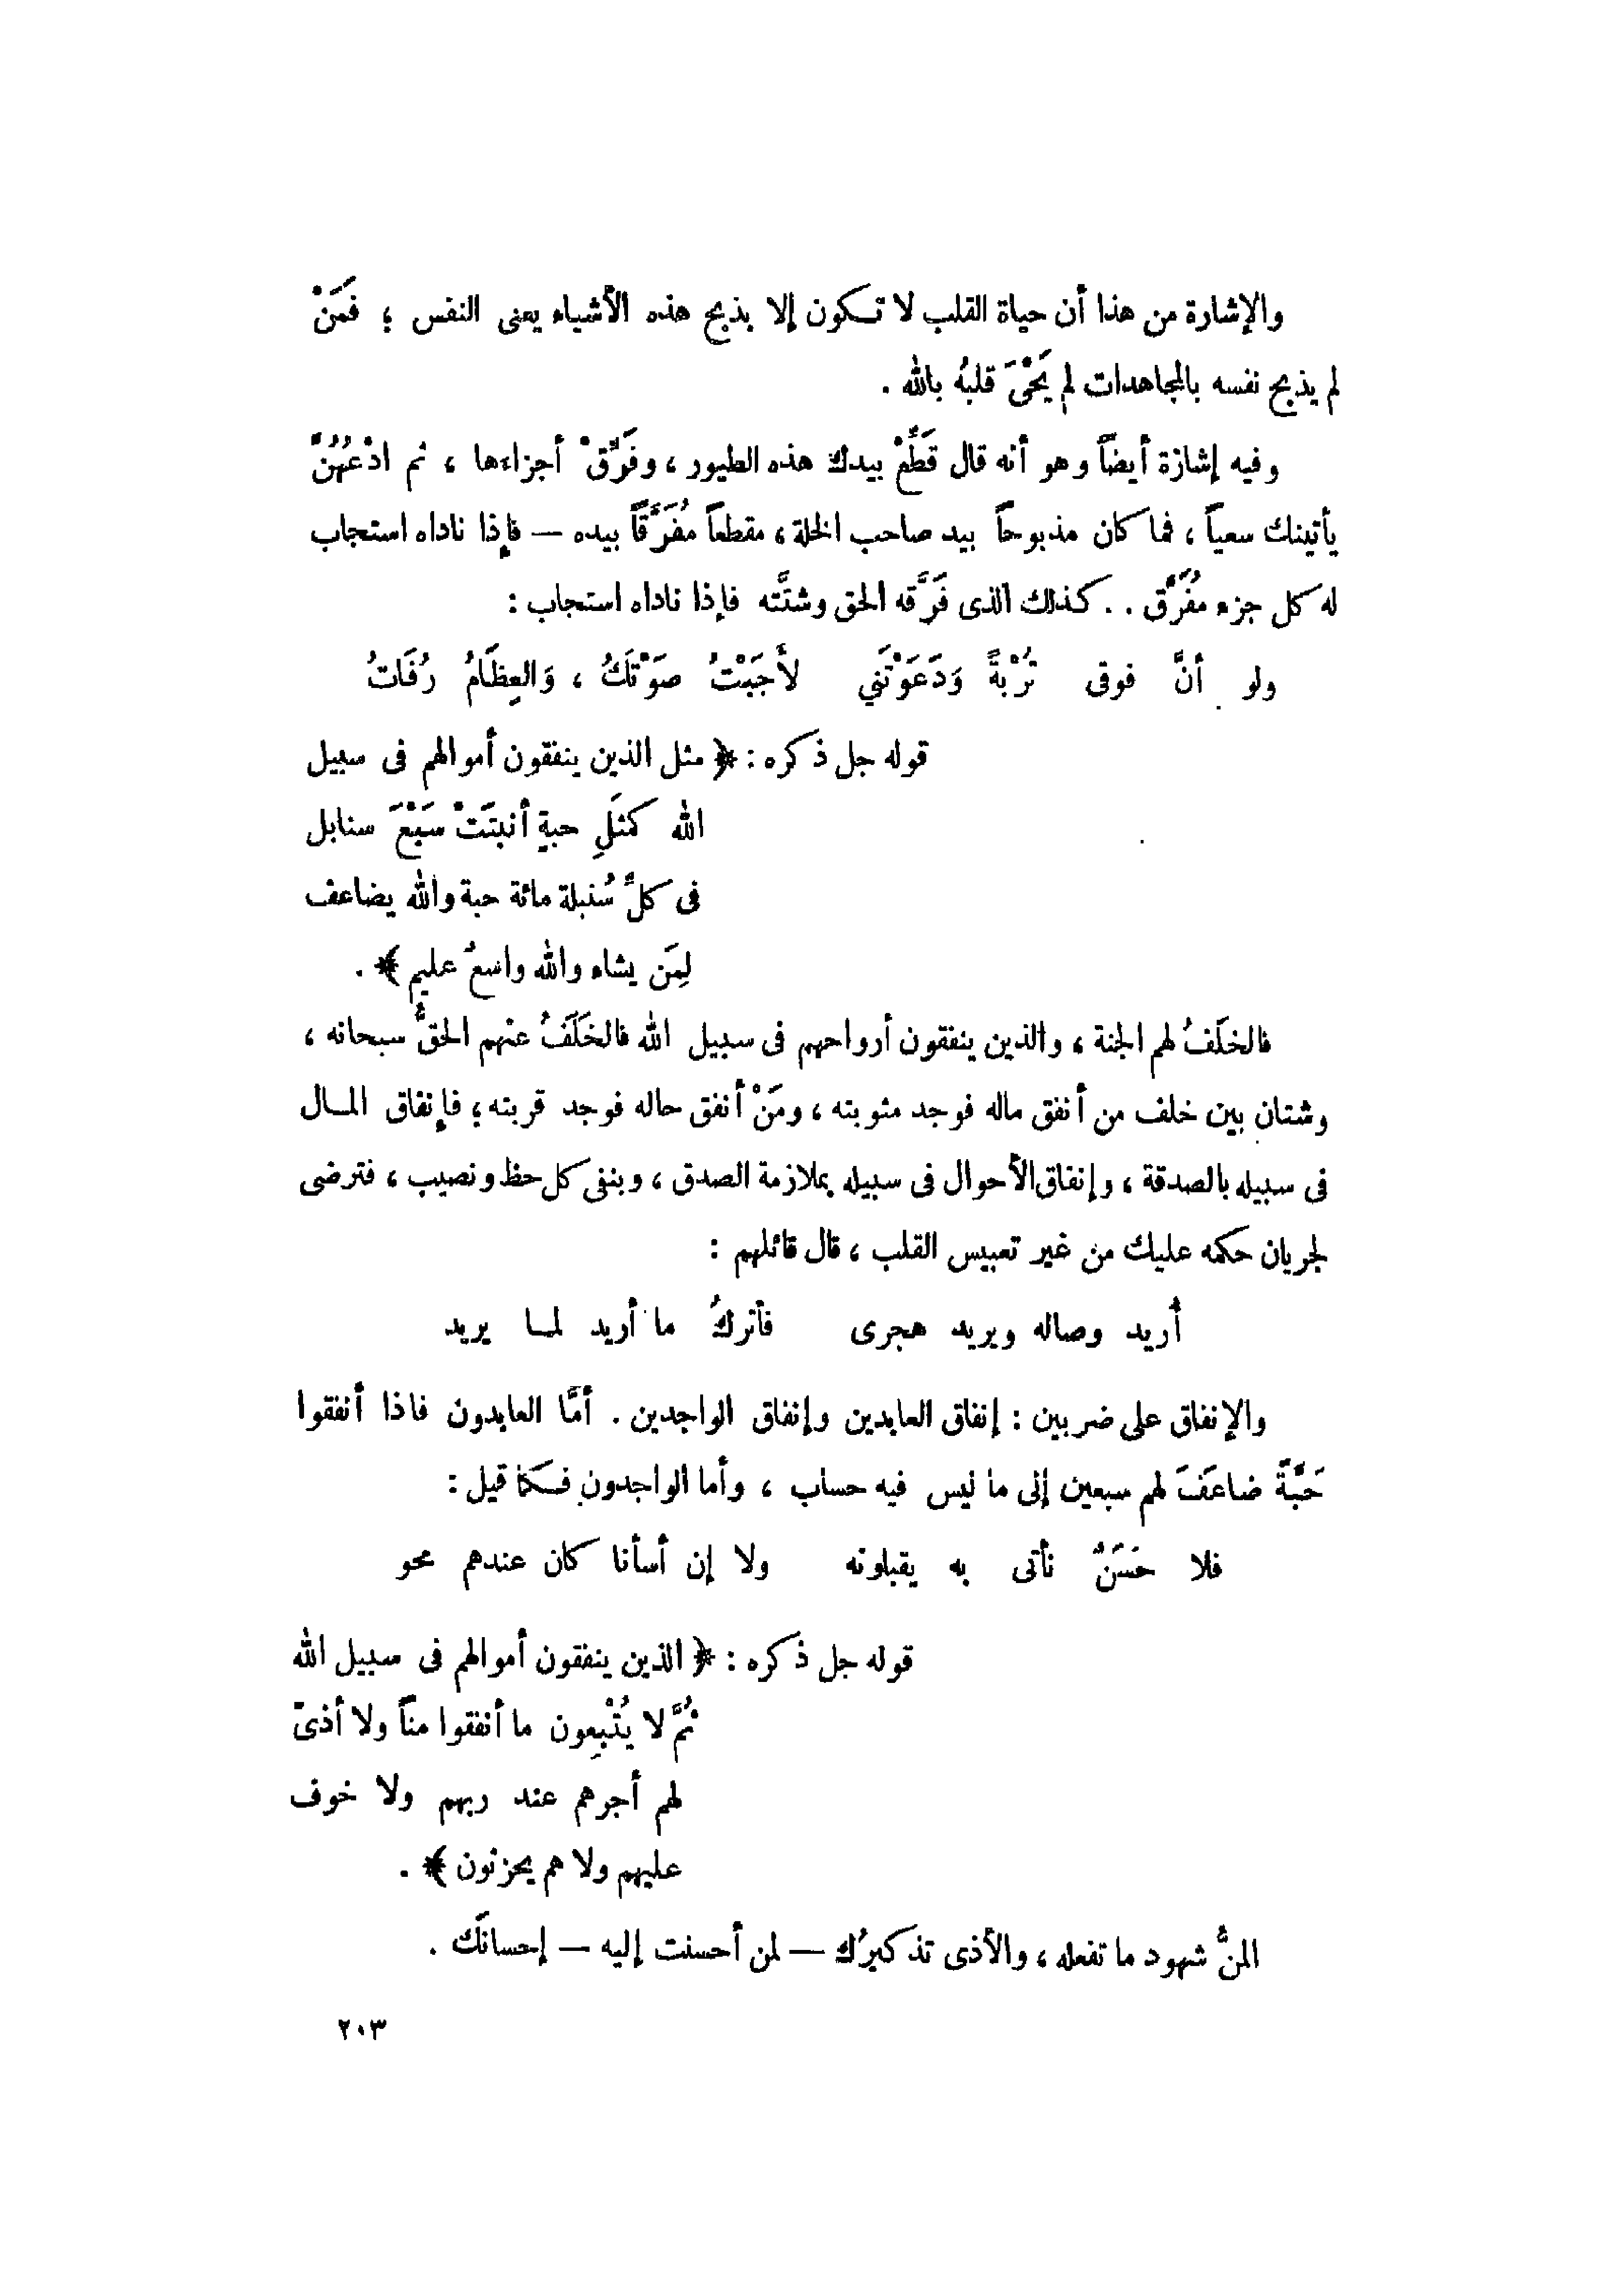 والإشارة من هذا أن حياة القلب لا تكون إلا بذبح هذه الأشياء يعنى النفس ؛ فَمَنْ
لم يذبح نفسه بالمجاهدات لم يَحْىَ قلبُه بالله .
وفيه إشارة أيضاً وهو أنه قال قَطِّعْ بيدك هذه الطيور ، وفَرِّقْ أجزاءها ، ثم ادْعُهُنَّ
يأتينك سعياً ، فما كان مذبوحاً بيد صاحب الخلة ، مقطعاً مُفَرَّقاً بيده — فإذا ناداه استجاب
له كل جزء مُفَرَّق . . كذلك الذى فَرَّقه الحق وشتَّته فإذا ناداه استجاب :
ولو أنَّ فوقى تُرْبةً وَدَعَوْتَني لأَجَبْتُ صَوْتَكَ ، وَالعِظَامُ رُفَاتُ
قوله جل ذكره : ﴿ مثل الذين ينفقون أموالهم فى سبيل
الله كمثَلِ حبةٍ أنبتَتْ سَبْعَ سنابل
فى كلِّ سُنبلة مائة حبة والله يضاعف
لِمَن يشاء والله واسعٌ عليم ﴾ .
فالخلَفُ لهم الجنة ، والذين ينفقون أرواحهم فى سبيل الله فالخَلَفُ عنهم الحقُّ سبحانه ،
وشتان بين خلف من أنفق ماله فوجد مثوبته ، ومَنْ أنفق حاله فوجد قربته ؛ فإنفاق المال
فى سبيله بالصدقة ، وإنفاق الأحوال فى سبيله بملازمة الصدق ، وبنفى كل حظ ونصيب ، فترضى
لجريان حكمه عليك من غير تعبيس القلب ، قال قائلهم :
أُريد وصاله ويريد هجرى فأتركُ ما أريد لما يريد
والإنفاق على ضربين : إنفاق العابدين وإنفاق الواجدين . أمَّا العابدون فاذا أنفقوا
حَبَّةً ضاعَفَ لهم سبعين إلى ما ليس فيه حساب ، وأما الواجدون فكما قيل :
فلا حَسَنٌ نأتى به يقبلونه ولا إن أسأنا كان عندهم محو
قوله جل ذكره : ﴿ الذين ينفقون أموالهم فى سبيل الله
ثُمَّ لا يُتْبِعون ما أنفقوا مناً ولا أذىً
لهم أجرهم عند ربهم ولا خوف
عليهم ولا هم يحزنون ﴾ .
المنُّ شهود ما تفعله ، والأذى تذكيرُك — لمن أحسنت إليه — إحسانَك .
٢٠٣